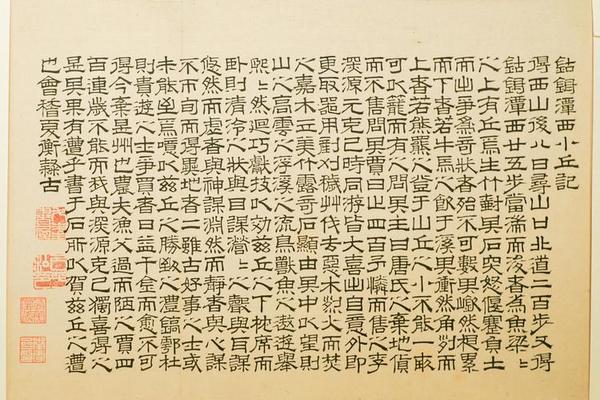 鈷鉧潭西小丘記
得西山後八日尋山口北道二百步又得
鈷鉧潭西廿五步當湍而浚者為魚梁〻
之上有丘焉生竹樹其石突怒偃蹇負土
而出爭為奇狀者殆不可數其嶔然相累
而下者若牛馬之飲于溪其衝然角列而
上者若熊羆之登于山丘之小不能一畝
可以籠而有之問其主曰唐氏之棄地貨
而不售問其賈曰止四百予憐而售之李
深源元克己時同游皆大喜出自意外即
更取器用剷刈穢艸伐去惡木烈火而焚
之嘉木立美竹露奇石顯由其中以望則
山之高雲之浮溪之流鳥獸魚之遨遊舉
熙〻然迴巧獻技以效茲丘之下枕席而
臥則清泠之狀與目謀瀯〻之聲與耳謀
悠然而虛者與神謀淵然而靜者與心謀
不帀旬而得異地者二雖古好事之士或
未能至焉噫以茲丘之勝致之灃鎬鄠杜
則貴遊之士爭買者日益千金而愈不可
得今棄是州也農夫漁父過而陋之賈四
百連歲不能而我與深源克己獨喜得之
是其果有遭乎書于石所以賀茲丘之遭
也會稽夏衡古